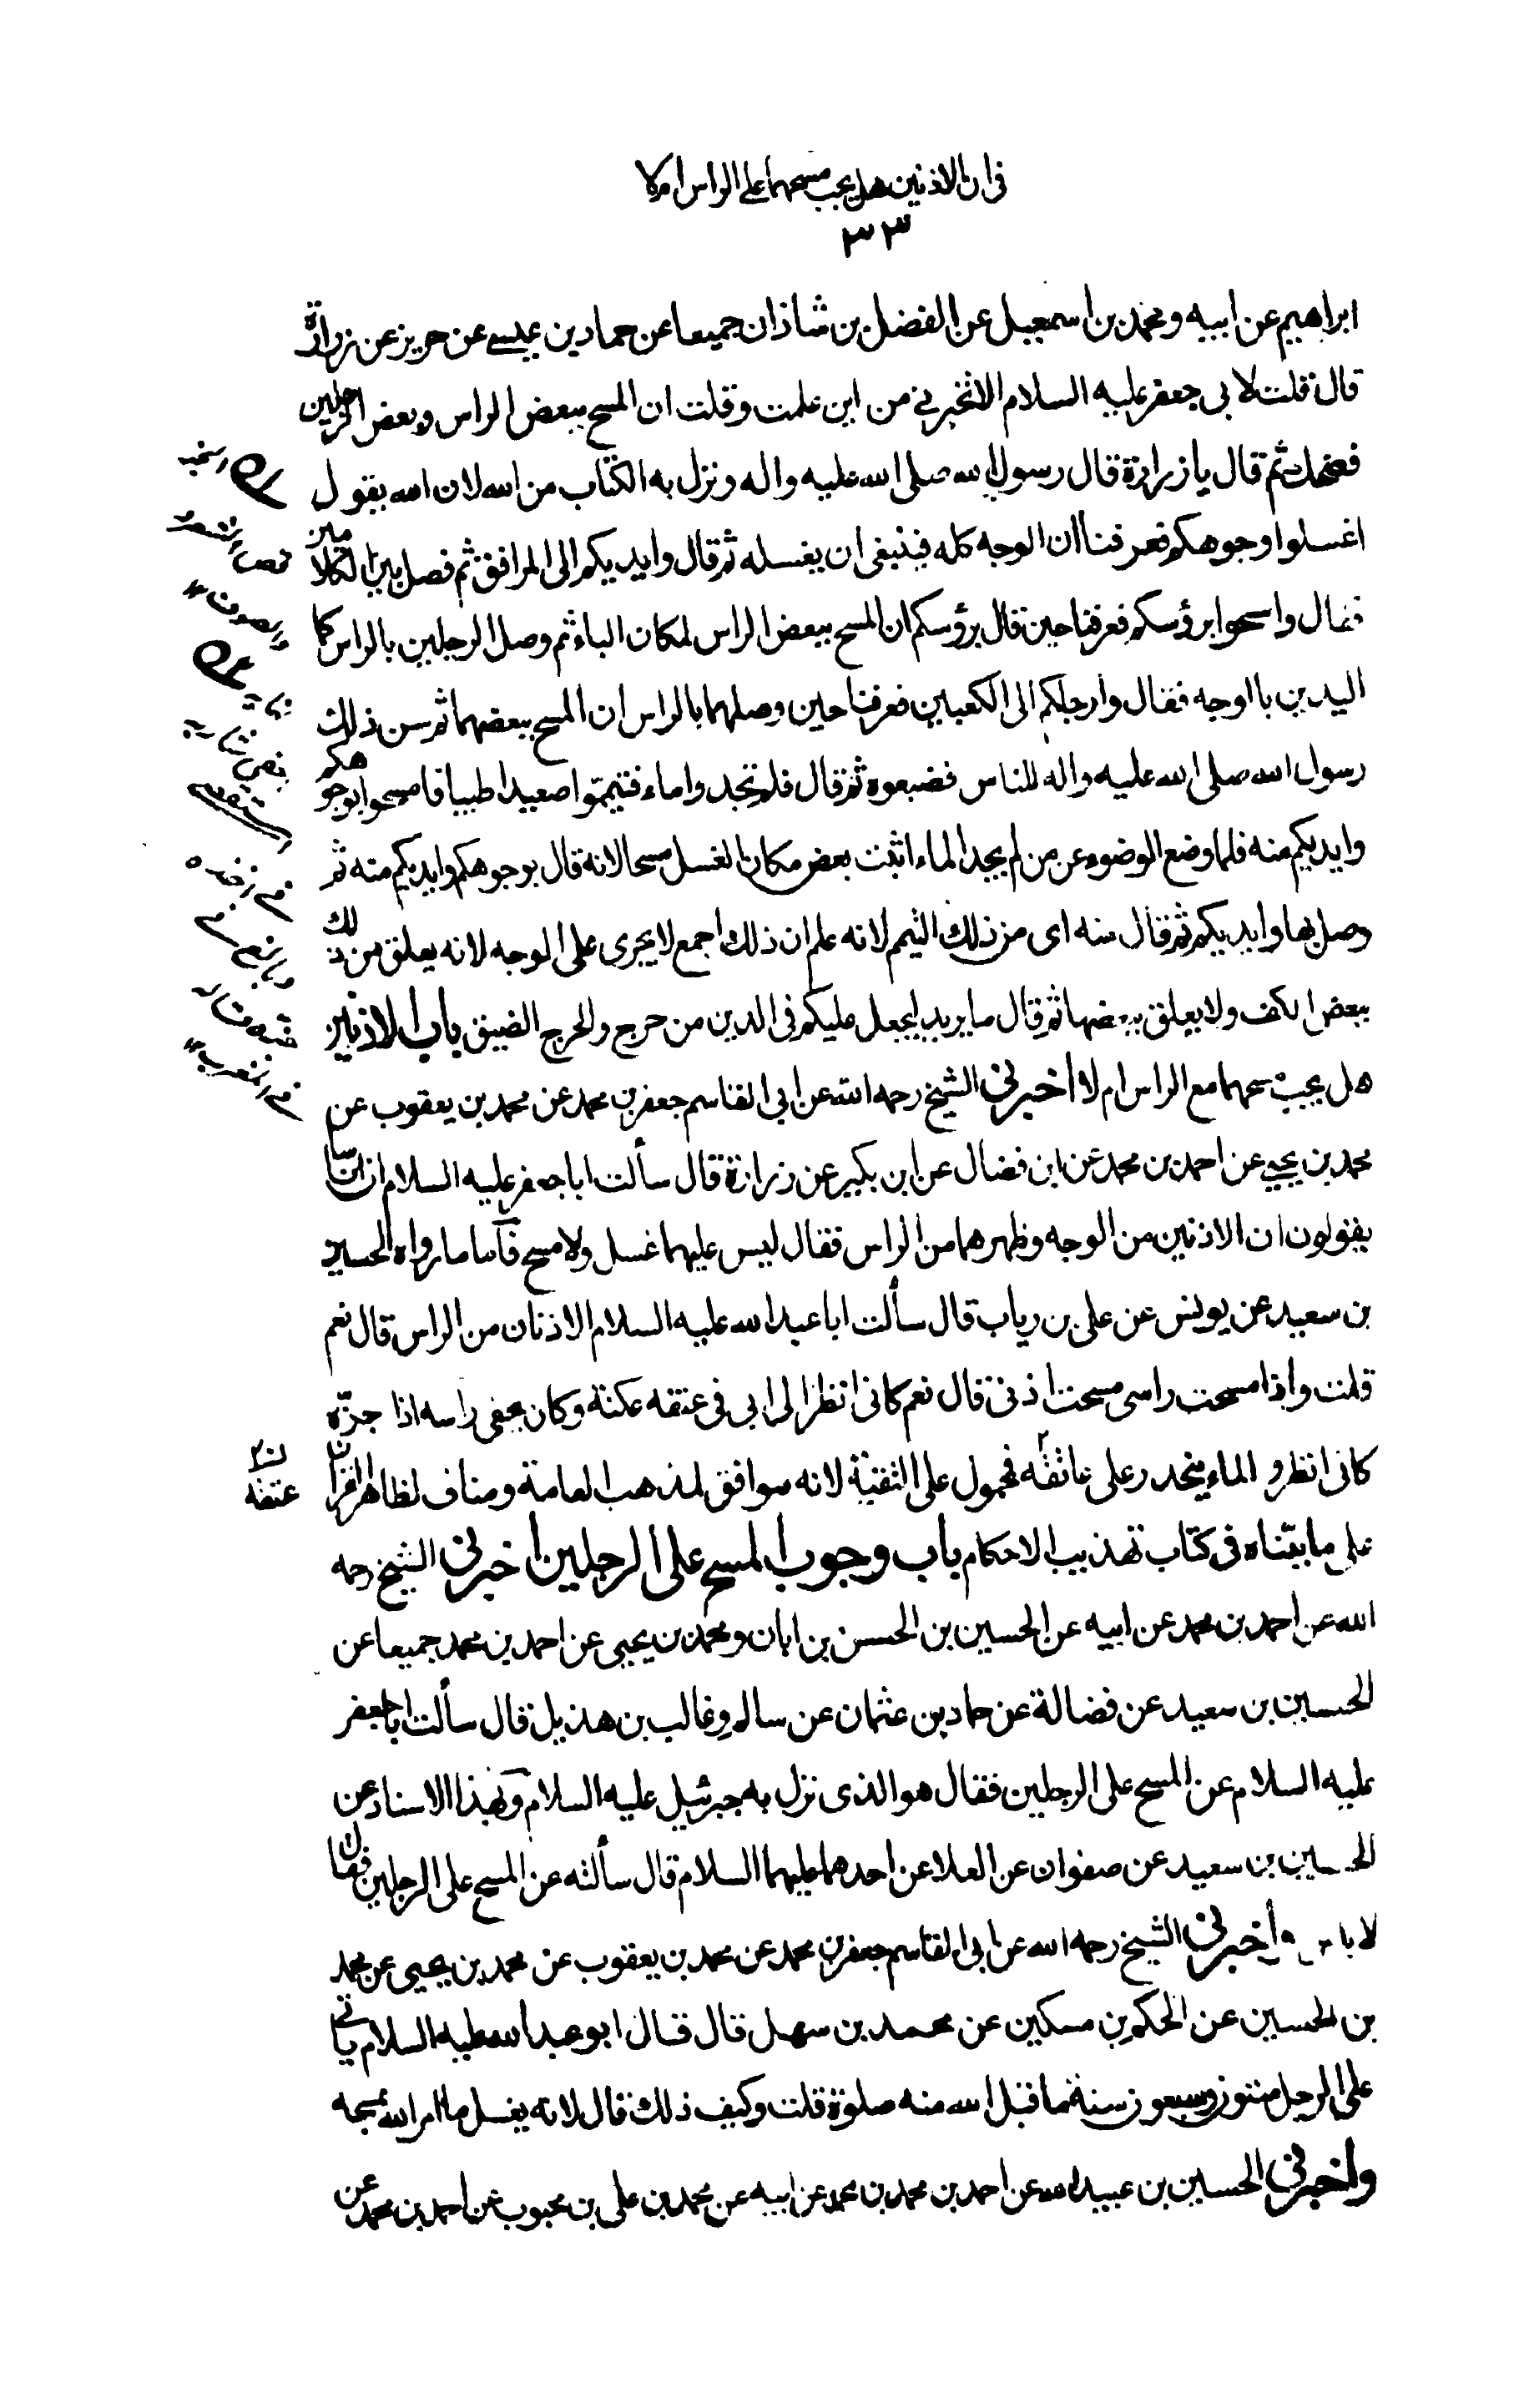 فى ان الاذنين هل يجب مسحهما على الراس ام لا
٣٣
ابراهيم عن ابيه ومحمد بن اسمعيل عن الفضل بن شاذان جميعا عن حماد بن عيسى عن حريز عن زرارة
قال قلت لابى جعفر عليه السلام الا تخبرنى من اين علمت وقلت ان المسح ببعض الراس وبعض الرجلين
فضحك ثم قال يا زرارة قال رسول الله صلى الله عليه واله ونزل به الكتاب من الله لان الله يقول
اغسلوا وجوهكم فعرفنا ان الوجه كله فينبغى ان يغسله ثم قال وايديكم الى المرافق ثم فصل بين الكلامين
فقال وامسحوا برؤسكم فعرفنا حين قال برؤسكم ان المسح ببعض الراس لمكان الباء ثم وصل الرجلين بالراس كما
اليدين بالوجه فقال وارجلكم الى الكعبين فعرفنا حين وصلهما بالراس ان المسح ببعضهما ثم سن ذلك
رسول الله صلى الله عليه واله للناس فضيعوه ثم قال فلم تجدوا ماء فتيمموا صعيدا طيبا فامسحوا بوجوهكم
وايديكم منه فلما وضع الوضوء عن من لم يجد الماء اثبت بعض مكان الغسل مسحا لانه قال بوجوهكم وايديكم منه ثم
وصل بها وايديكم ثم قال منه اى من ذلك التيمم لانه علم ان ذلك اجمع لا يجرى على الوجه لانه يعلق من ذلك
ببعض الكف ولا يعلق ببعضها ثم قال ما يريد ليجعل عليكم فى الدين من حرج والحرج الضيق باب الاذنين
هل يجب مسحهما مع الراس ام لا اخبرنى الشيخ رحمه الله عن ابى القاسم جعفر بن محمد عن محمد بن يعقوب عن
محمد بن يحيى عن احمد بن محمد عن ابن فضال عن ابن بكير عن زرارة قال سألت ابا جعفر عليه السلام ان اناسا
يقولون ان الاذنين من الوجه وظهرهما من الراس فقال ليس عليهما غسل ولا مسح فأما ما رواه الحسين
بن سعيد عن يونس عن على بن رياب قال سألت ابا عبد الله عليه السلام الاذنان من الراس قال نعم
قلت واذا مسحت راسى مسحت اذنى قال نعم كانى انظر الى ابى فى عنقه عكنة وكان يحفى راسه اذا جزّه
كانى انظر و الماء ينحدر على عاتقه فمحمول على التقيّة لانه موافق لمذهب العامة ومناف لظاهر القران
عنقه
على ما بيّناه فى كتاب تهذيب الاحكام باب وجوب المسح على الرجلين اخبرنى الشيخ رحمه
الله عن احمد بن محمد عن ابيه عن الحسين بن الحسن بن ابان ومحمد بن يحيى عن احمد بن محمد جميعا عن
الحسين بن سعيد عن فضالة عن حماد بن عثمان عن سالم وغالب بن هذيل قال سألت ابا جعفر
عليه السلام عن المسح على الرجلين فقال هو الذى نزل به جبرئيل عليه السلام وبهذا الاسناد عن
الحسين بن سعيد عن صفوان عن العلا عن احدهما عليهما السلام قال سألته عن المسح على الرجلين فقال
لا باس واخبرنى الشيخ رحمه الله عن ابى القاسم جعفر بن محمد عن محمد بن يعقوب عن محمد بن يحيى عن محمد
بن الحسين عن الحكم بن مسكين عن محمد بن سهل قال قال ابو عبد الله عليه السلام ياتى
على الرجل ستون وسبعون سنة ما قبل الله منه صلوة قلت وكيف ذلك قال لانه يغسل ما امر الله بمسحه
واخبرنى الحسين بن عبيد الله عن احمد بن محمد بن محمد عن ابيه عن محمد بن على بن محبوب عن احمد بن محمد عن